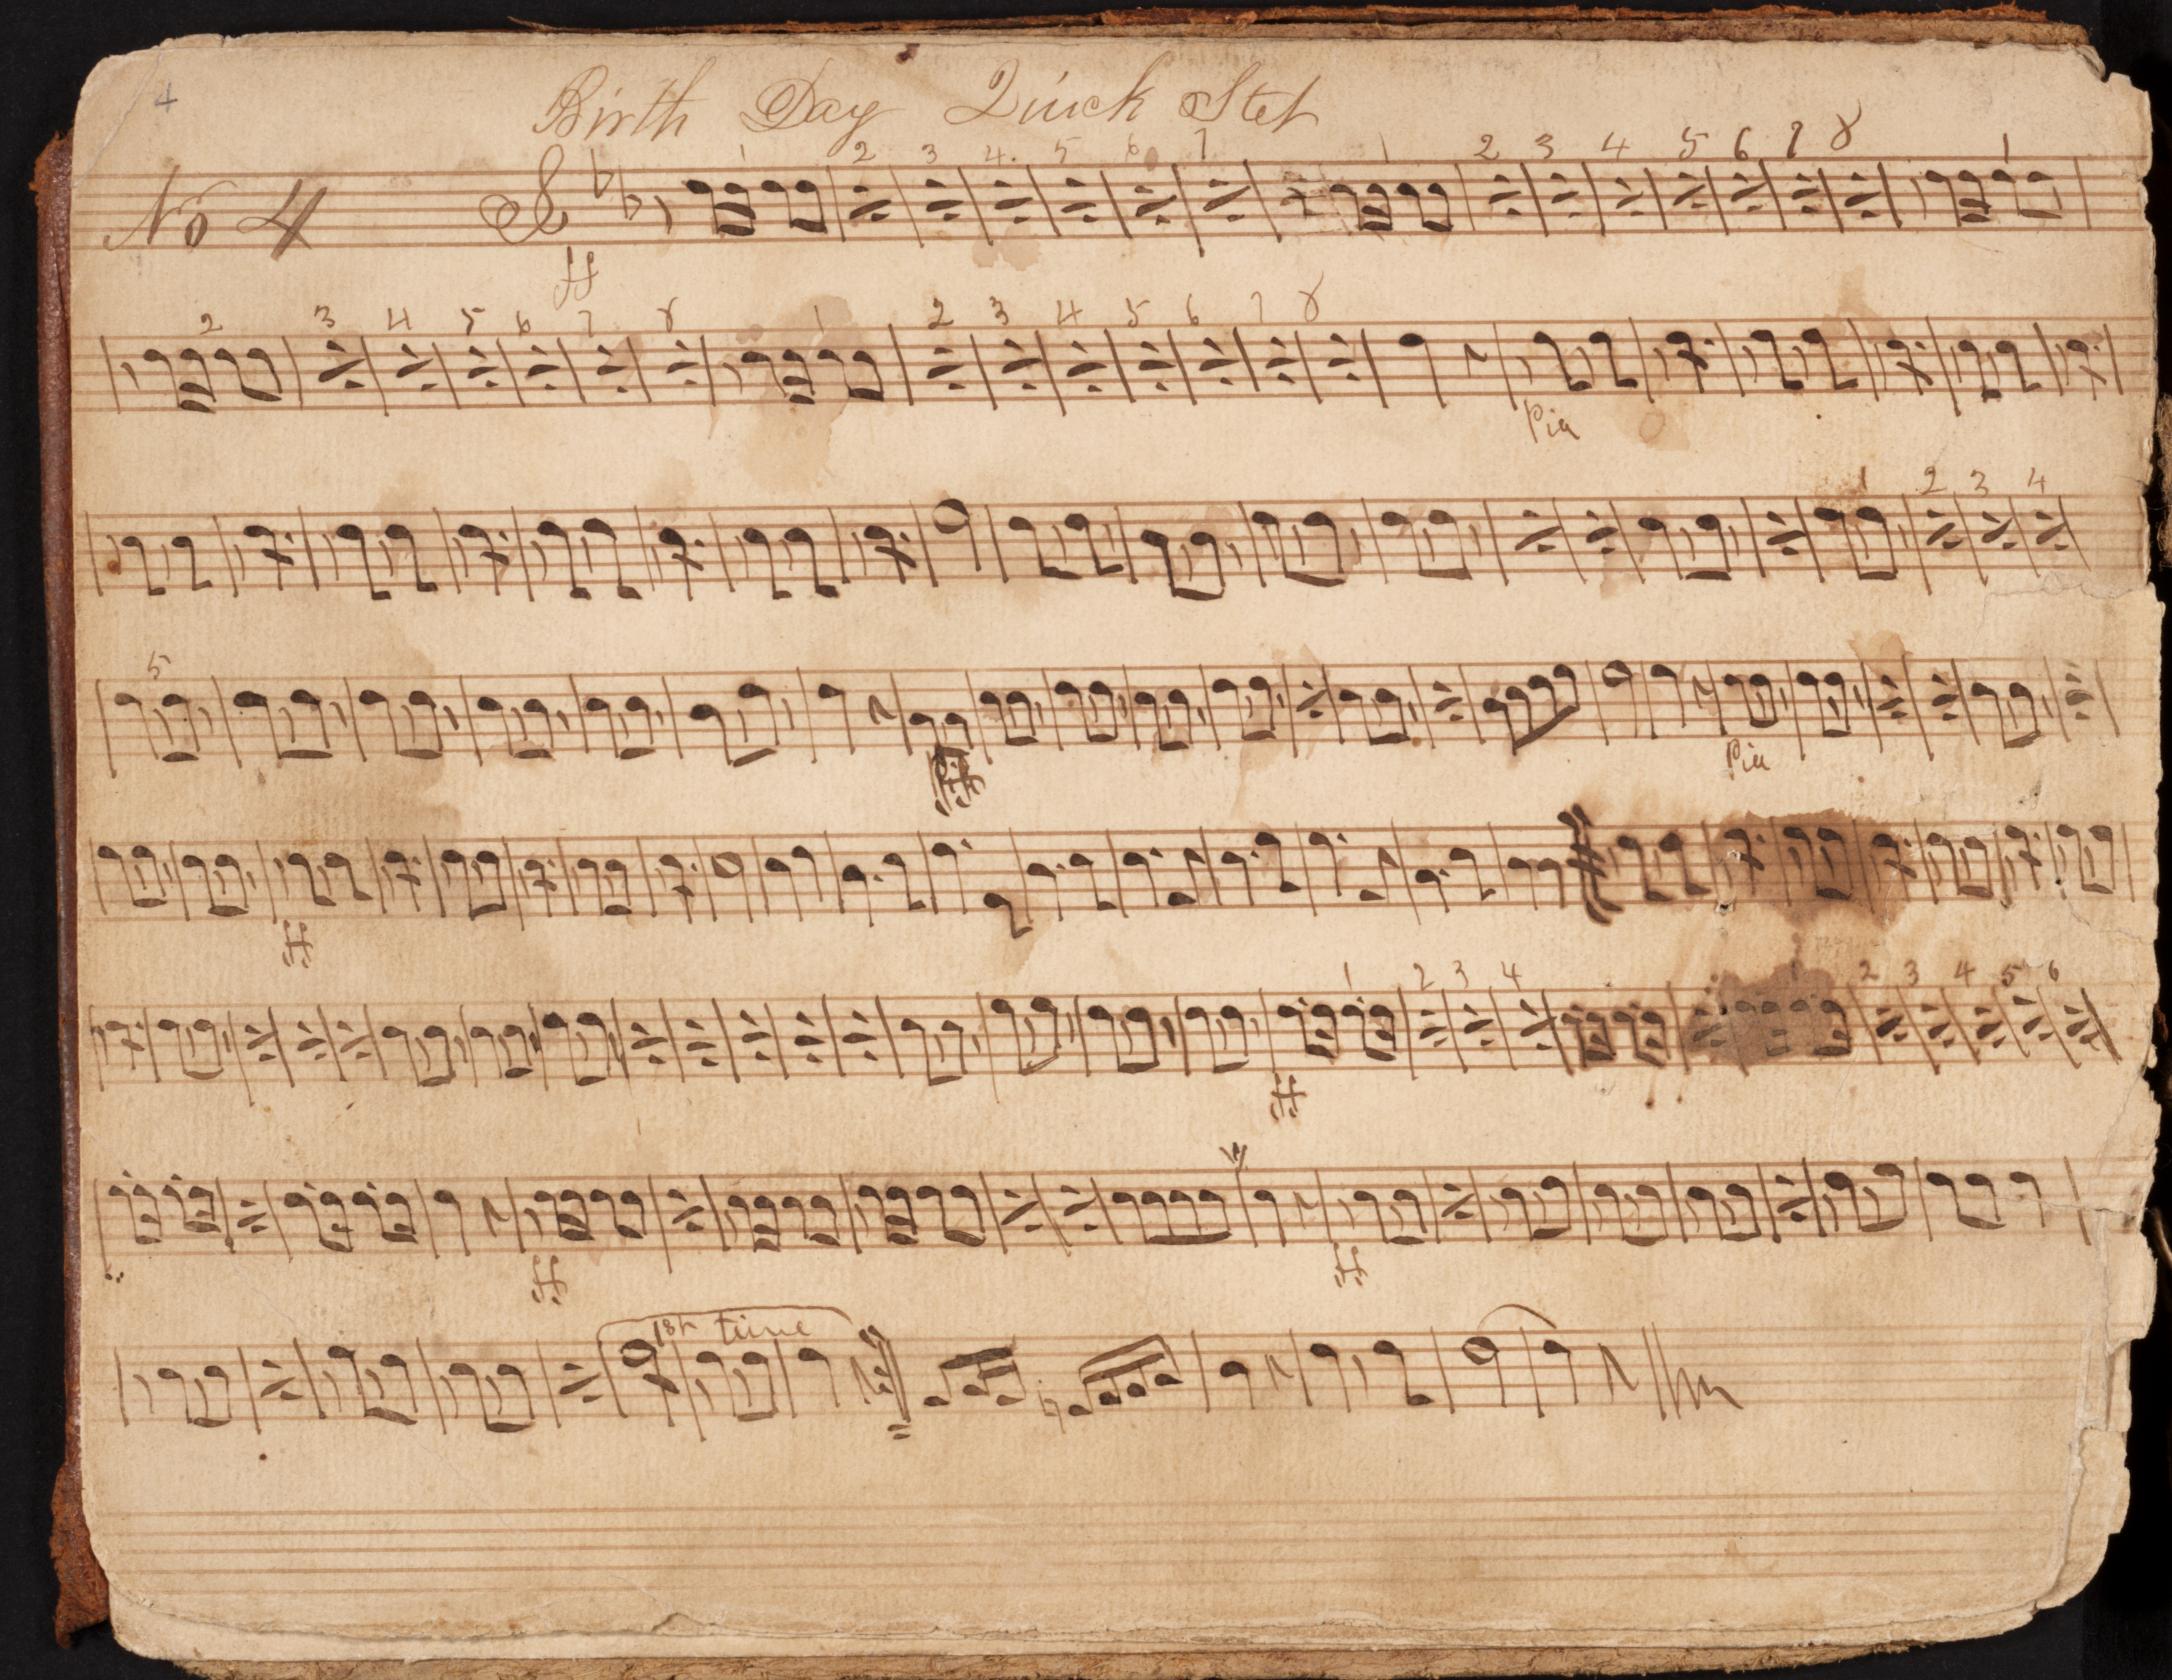 4
Birth Day Quick Step
1 2 3 4 5 6 7 1 2 3 4 5 6 7 8 1
No 4
ff
2 3 4 5 6 7 8 1 2 3 4 5 6 7 8
Pia
1 2 3 4
5
Pia
ff
1 2 3 4 1 2 3 4 5 6
ff
ff ff
1st time